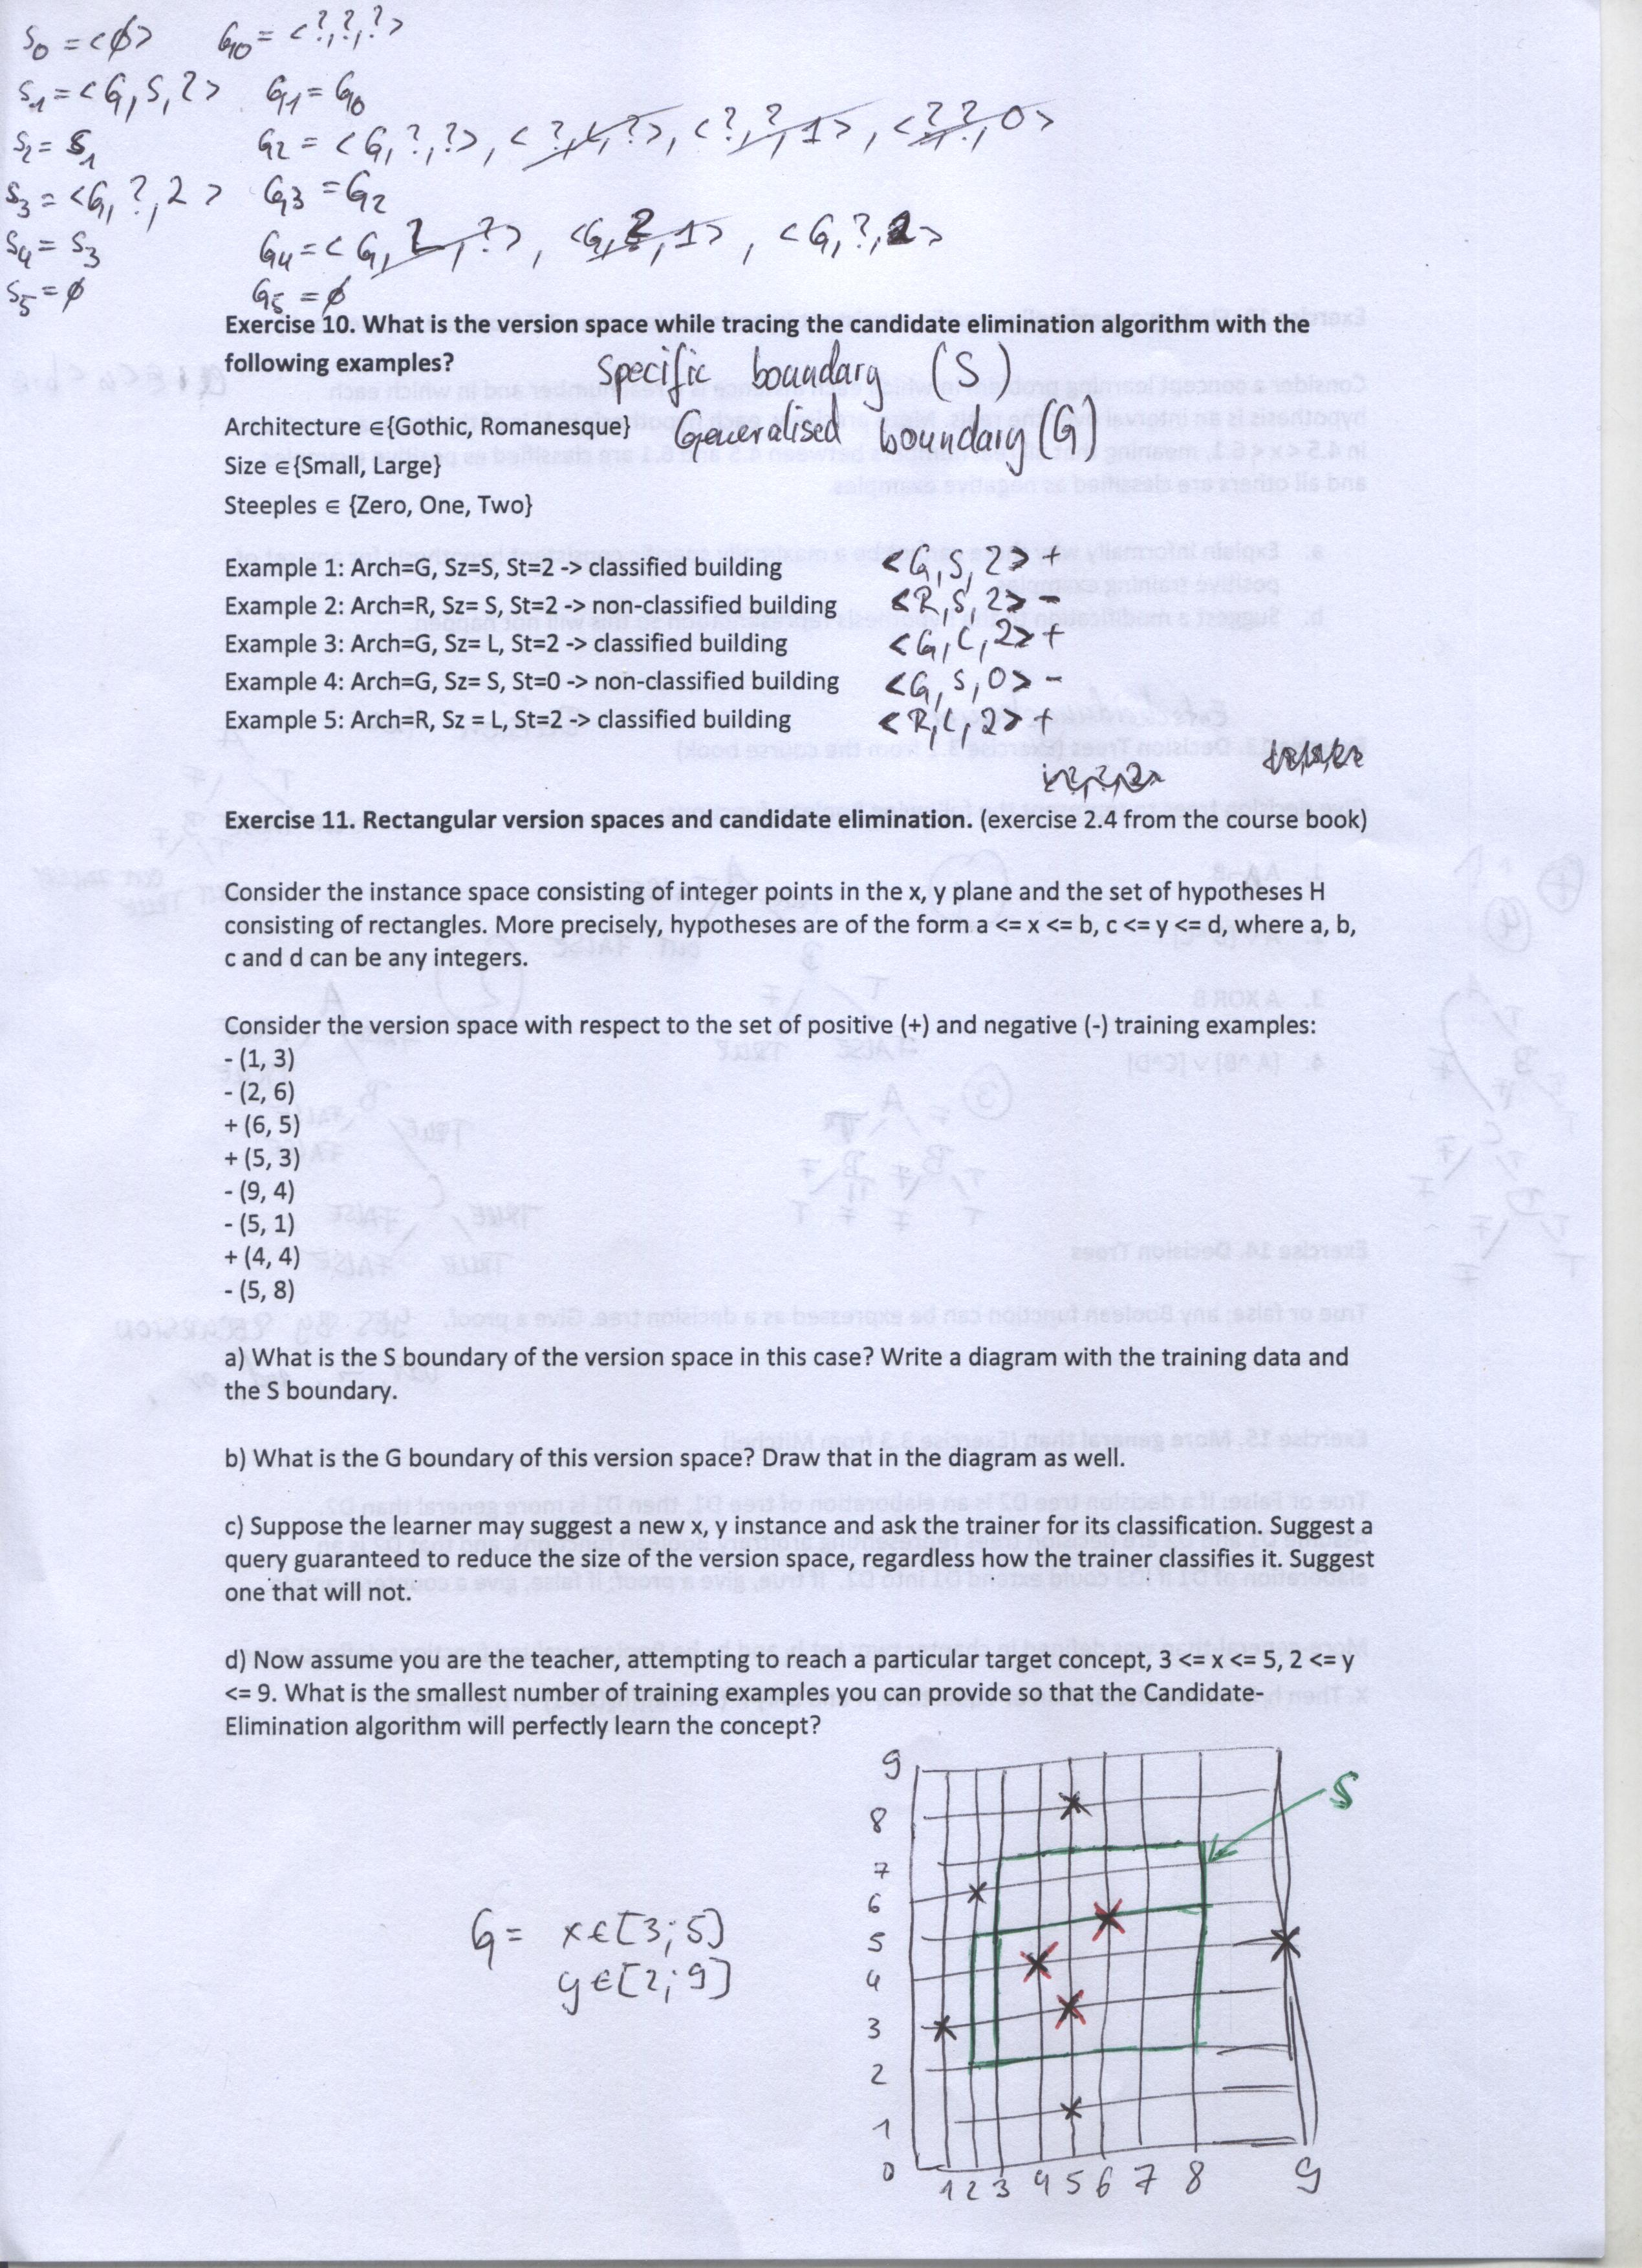 S0 = <ϕ> G0 = <?,?,?>
S1 = <G,S,2> G1 = G0
S2 = S1 G2 = <G,?,?>, <?,L,?>, <?,?,1>, <?,?,0>
S3 = <G,?,2> G3 = G2
S4 = S3 G4 = <G,2,?>, <G,?,1>, <G,?,2>
S5 = ϕ G5 = ϕ
Exercise 10. What is the version space while tracing the candidate elimination algorithm with the
following examples?
Specific boundary (S)
Generalised boundary (G)
Architecture ∈{Gothic, Romanesque}
Size ∈{Small, Large}
Steeples ∈ {Zero, One, Two}
Example 1: Arch=G, Sz=S, St=2 -> classified building <G,S,2> +
Example 2: Arch=R, Sz= S, St=2 -> non-classified building <R,S,2> -
Example 3: Arch=G, Sz= L, St=2 -> classified building <G,L,2> +
Example 4: Arch=G, Sz= S, St=0 -> non-classified building <G,S,0> -
Example 5: Arch=R, Sz = L, St=2 -> classified building <R,L,2> +
Exercise 11. Rectangular version spaces and candidate elimination. (exercise 2.4 from the course book)
Consider the instance space consisting of integer points in the x, y plane and the set of hypotheses H
consisting of rectangles. More precisely, hypotheses are of the form a <= x <= b, c <= y <= d, where a, b,
c and d can be any integers.
Consider the version space with respect to the set of positive (+) and negative (-) training examples:
- (1, 3)
- (2, 6)
+ (6, 5)
+ (5, 3)
- (9, 4)
- (5, 1)
+ (4, 4)
- (5, 8)
a) What is the S boundary of the version space in this case? Write a diagram with the training data and
the S boundary.
b) What is the G boundary of this version space? Draw that in the diagram as well.
c) Suppose the learner may suggest a new x, y instance and ask the trainer for its classification. Suggest a
query guaranteed to reduce the size of the version space, regardless how the trainer classifies it. Suggest
one that will not.
d) Now assume you are the teacher, attempting to reach a particular target concept, 3 <= x <= 5, 2 <= y
<= 9. What is the smallest number of training examples you can provide so that the Candidate-
Elimination algorithm will perfectly learn the concept?
G = x∈[3;5]
y∈[2;9]
S
9
8
7
6
5
4
3
2
1
0
1 2 3 4 5 6 7 8 9